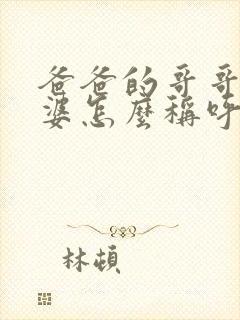 爸爸的哥哥
婆怎麼稱呼
林頓